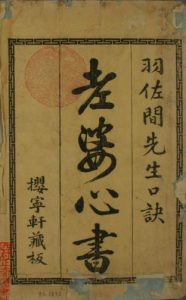 羽佐間先生口訣
老婆心書
櫻寧軒藏板